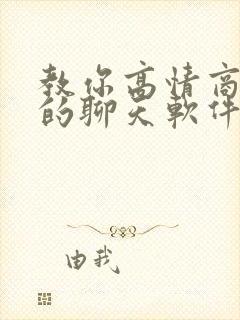 教你高情商
的聊天軟件
由我